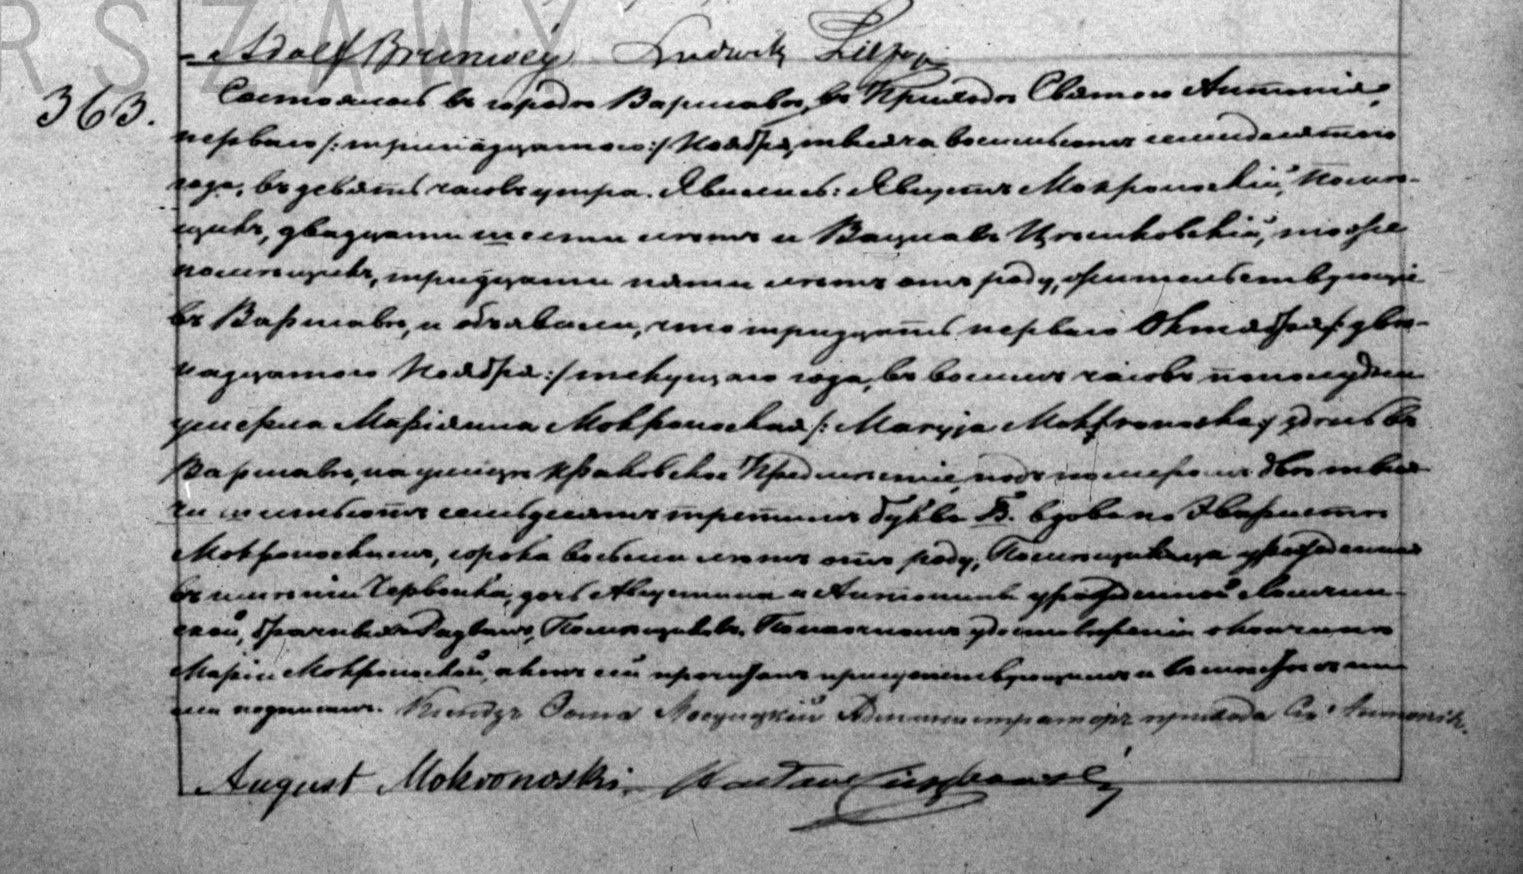 RSZAWY
Adolf Brunwej Ludwik
363.
Состоялось въ городѣ Варшавѣ, въ Приходѣ Святого Антонія,
перваго /:тринадцатаго:/ Ноября, тысяча восемьсотъ семидесятаго
года, въ девять часовъ утра. Явились: Августъ Мокроноскій, помѣ-
щикъ, двадцати шести лѣтъ и Вацлавъ Цѣшковскій, тоже
помѣщикъ, тридцати пяти лѣтъ отъ роду, жительствующіе
въ Варшавѣ, и объявили, что тридцать перваго Октября /:двѣ-
надцатого Ноября:/ текущаго года, въ восемь часовъ пополудни
умерла Маріянна Мокроноская /: Maryja Mokronoska :/ здѣсь въ
Варшавѣ, на улицѣ Краковское Предмѣстіе, подъ номеромъ двѣ тыся-
чи шестьсотъ семьдесятъ третьимъ буква Б. вдова по Эваристѣ
Мокроноскимъ, сорока восьми лѣтъ отъ роду, Помѣщица урожденная
въ имѣніи Червонка, дочь Августина и Антонины урожденной
ской, брачныхъ Помѣщиковъ. По настоящемъ удостовѣреніи о кончинѣ
Маріи Мокроноской, актъ сей прочитанъ присутствующимъ и вами
ими подписанъ. Ксендзъ Администраторъ прихода Св. Антонія.
August Mokronoski. Wacław Cieszkowski